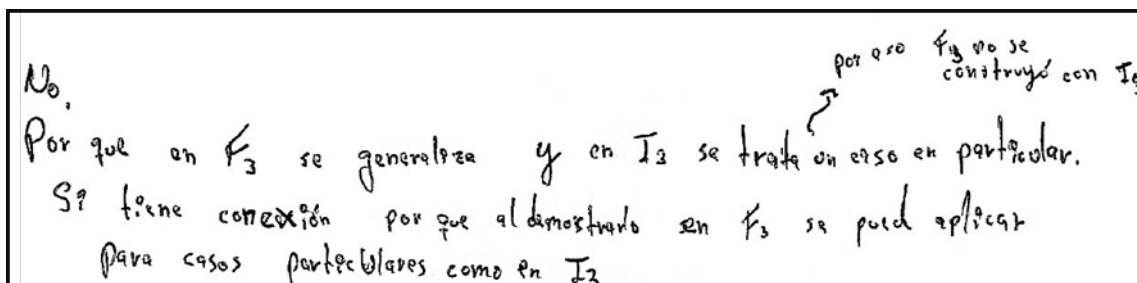 por eso F₃ no se
construyó con I₃
No.
Por que en F₃ se generaliza y en I₃ se trata un caso en particular.
Si tiene conexión por que al demostrarlo en F₃ se pued aplicar
para casos particulares como en I₃